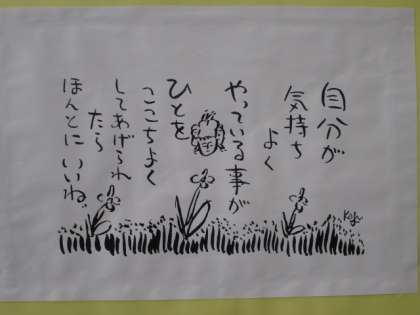 自分が
気持ち
よく
やっている事が
ひとを
ここちよく
してあげられ
たら
ほんとにいいね。